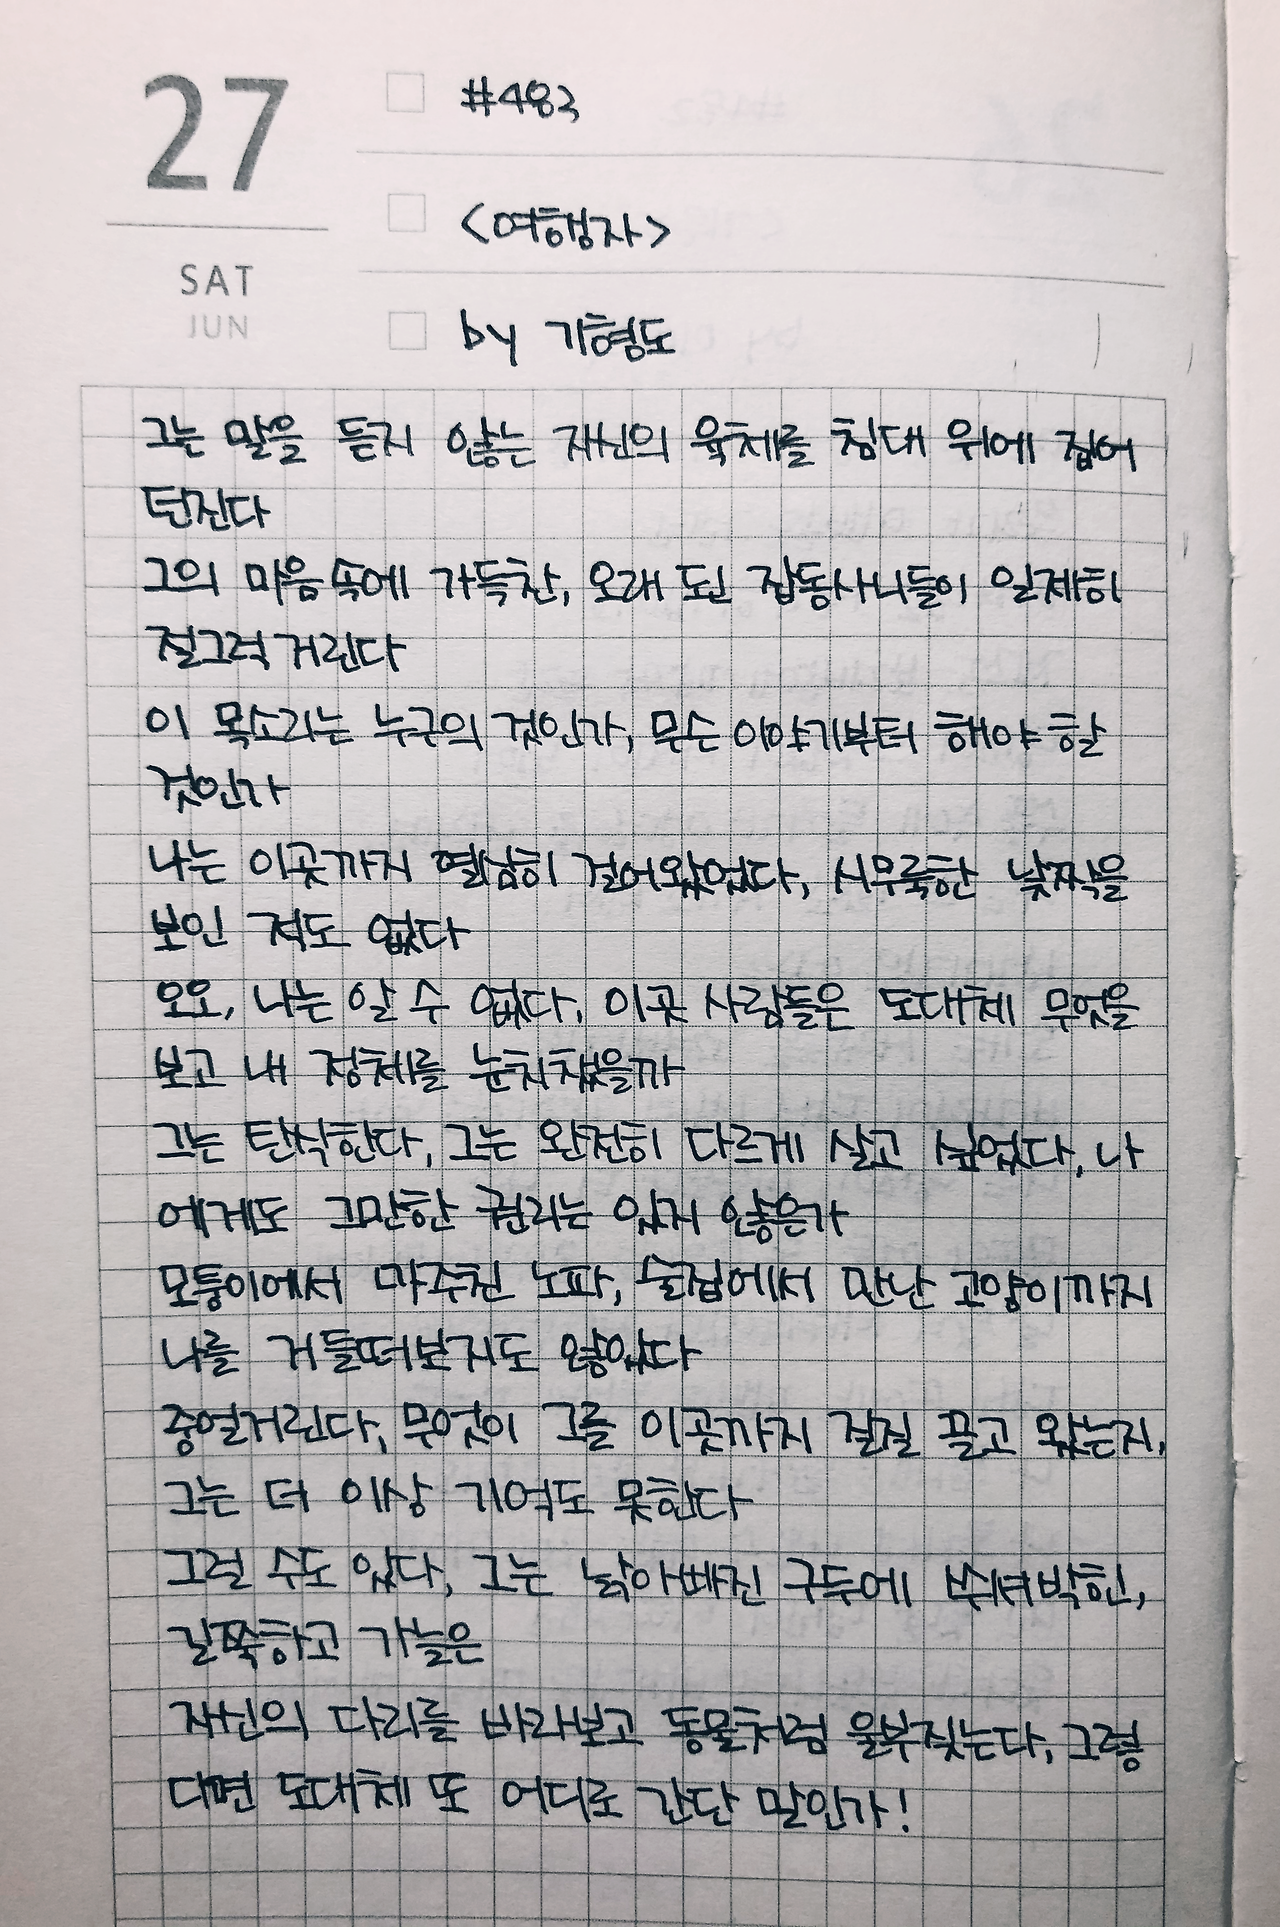 27
SAT
JUN
#483
<여행자>
by 기형도
그는 말을 듣지 않는 자신의 육체를 침대 위에 집어
던진다
그의 마음속에 가득찬, 오래 된 잡동사니들이 일제히
절그럭거린다
이 목소리는 누구의 것인가, 무슨 이야기부터 해야 할
것인가
나는 이곳까지 열심히 걸어왔었다, 시무룩한 낯짝을
보인 적도 없다
오오, 나는 알 수 없다, 이곳 사람들은 도대체 무엇을
보고 내 정체를 눈치챘을까
그는 탄식한다, 그는 완전히 다르게 살고 싶었다, 나
에게도 그만한 권리는 있지 않은가
모퉁이에서 마주친 노파, 술집에서 만난 고양이까지
나를 거들떠보지도 않았다
중얼거린다, 무엇이 그를 이곳까지 질질 끌고 왔는지,
그는 더 이상 기억도 못한다
그럴 수도 있다, 그는 낡아빠진 구두에 쑤셔박힌,
길쭉하고 가늘은
자신의 다리를 바라보고 동물처럼 울부짖는다, 그렇
다면 도대체 또 어디로 간단 말인가!